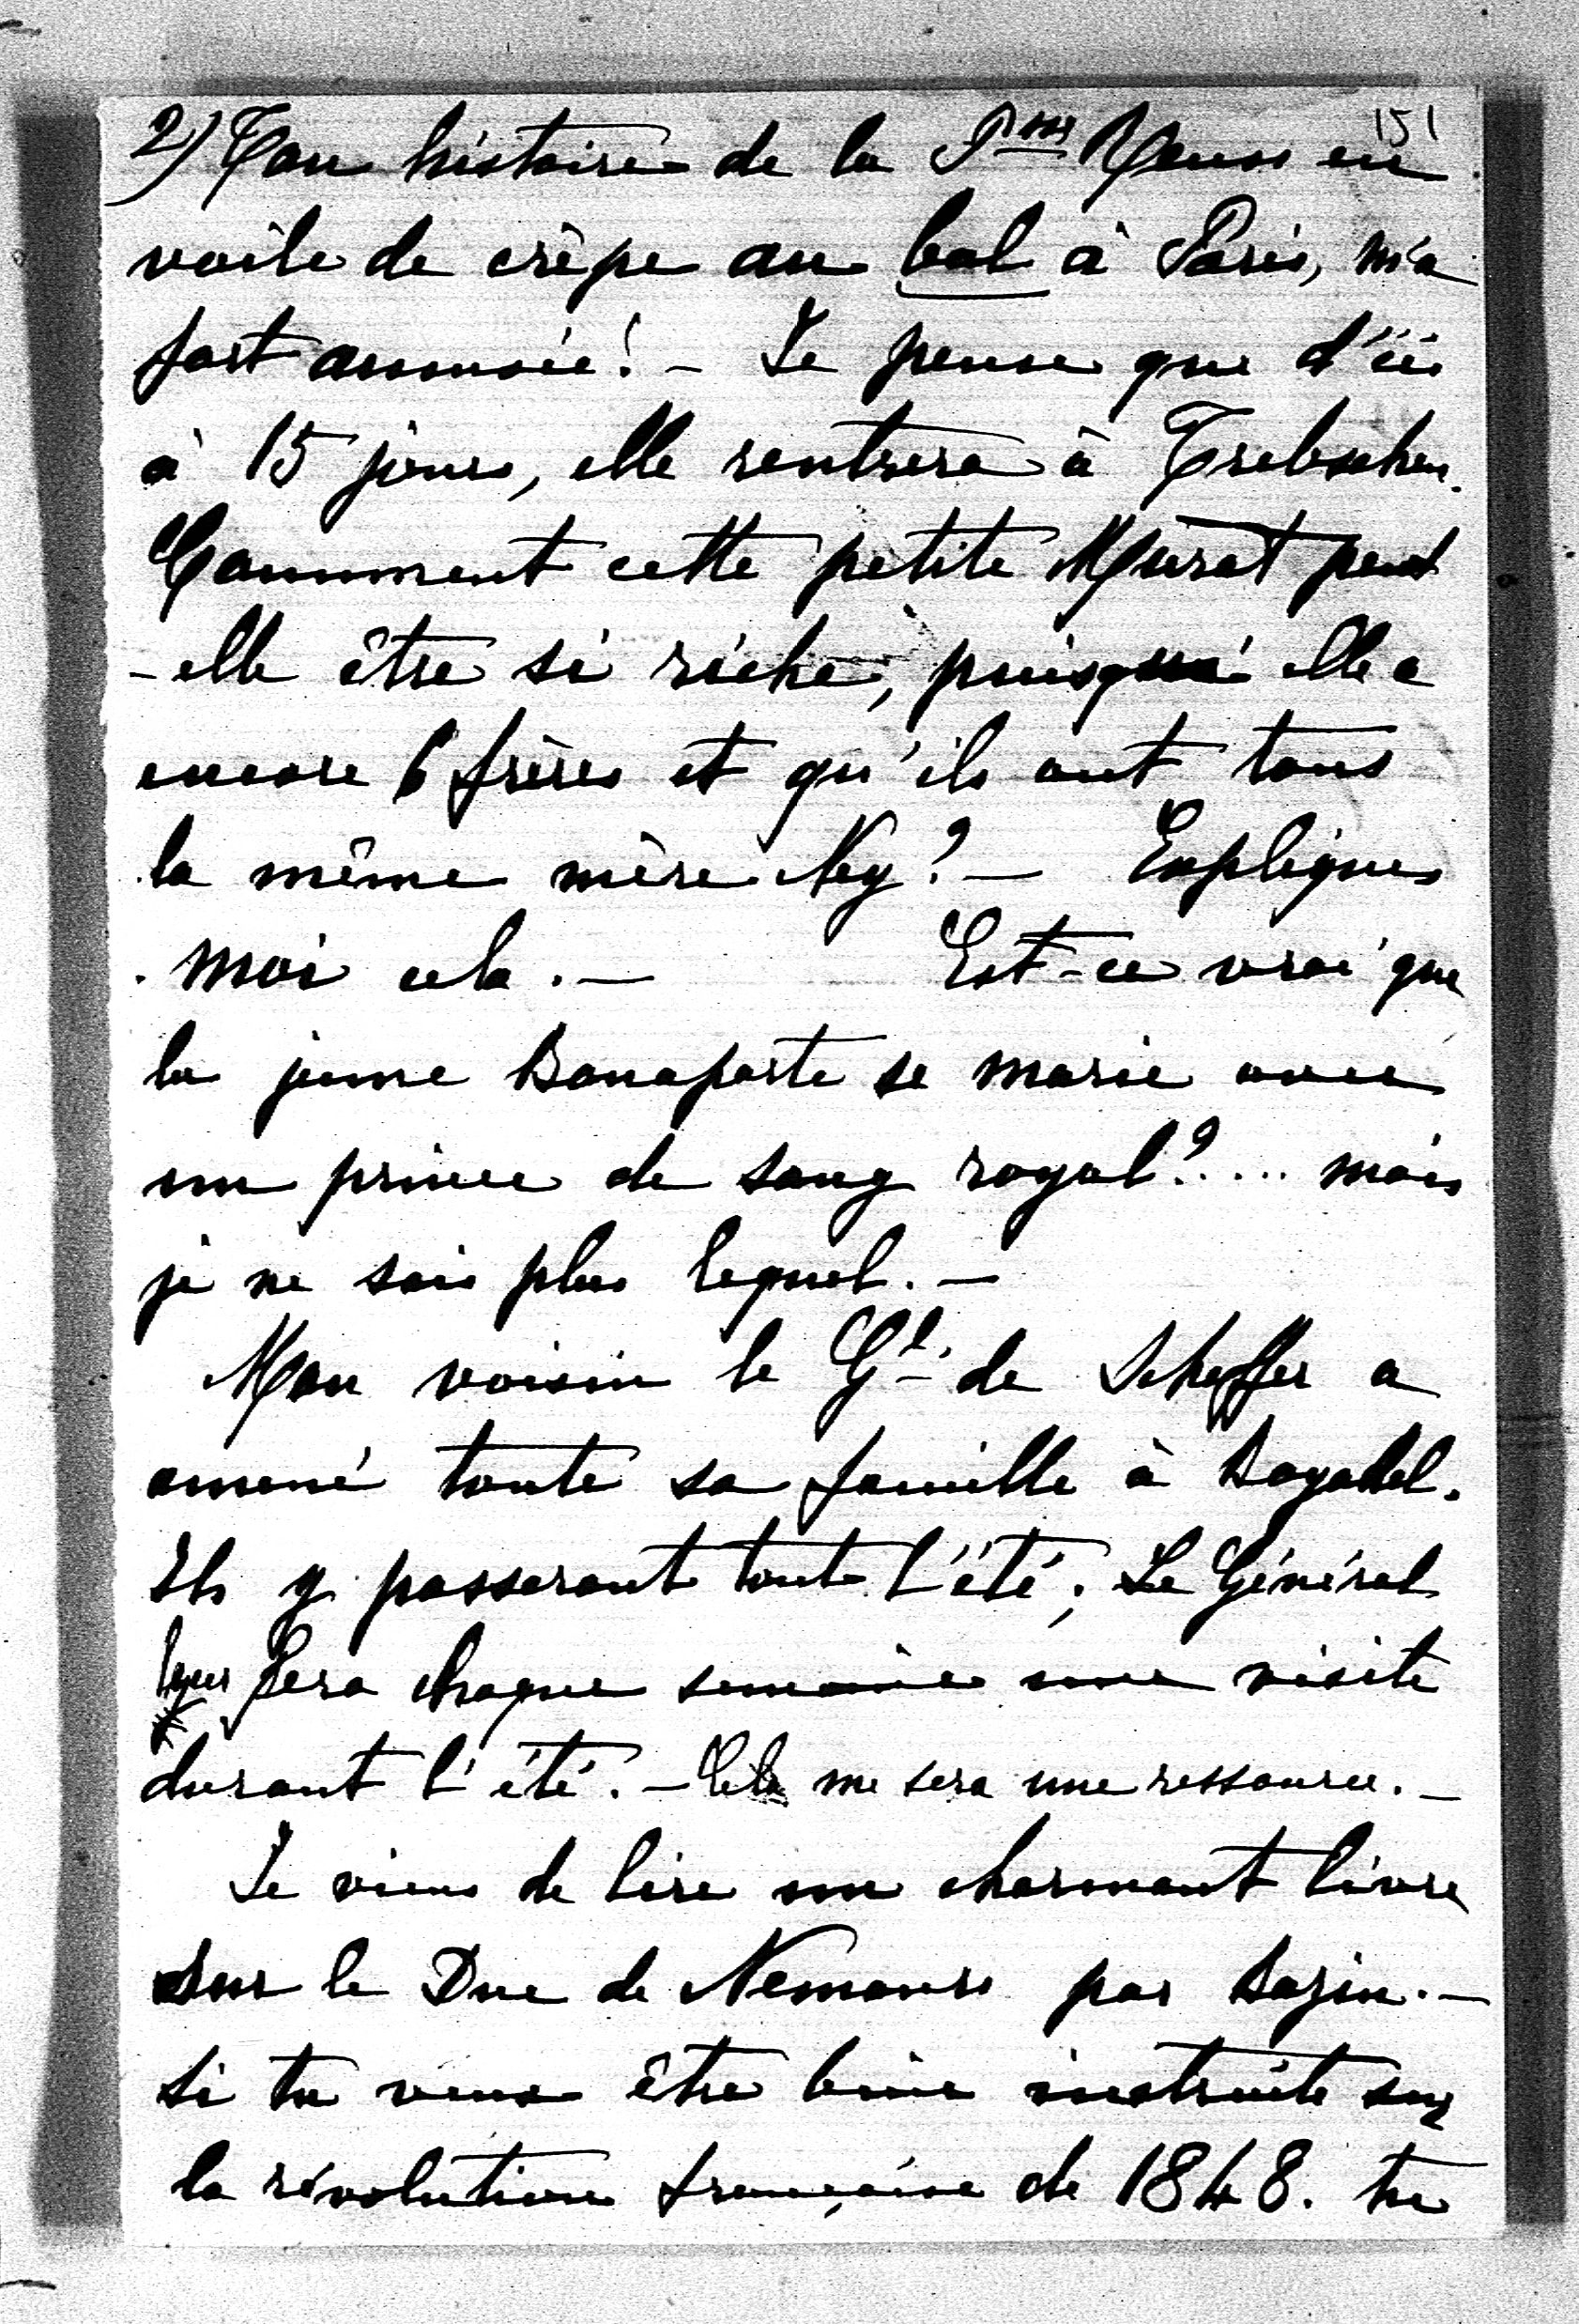 151
2) Ton histoire de la Pcess Reuss en
voile de crêpe au bal à Paris, m'a
fort amusée! – Je pense que d'ici
à 15 jours, elle rentrera à Trebschen.
Comment cette petite Murat peut
-elle être si riche, puisqu' elle a
encore 6 frères et qu'ils ont tous
la même mère Ney? – Expliques
moi cela. – Est-ce vrai que
la jeune Bonaparte se marie avec
un prince de sang royal?.... mais
je ne sais plus lequel. –
Mon voisin le Gl de Scheffer a
amené toute sa famille à Boyadel.
Ils y passeront tout l'été; Le Général
leur fera chaque semaine une visite
durant l'été. – Cela me sera une ressource. –
Je viens de lire un charmant livre
sur le Duc de Nemours par Bazin. –
Si tu veux être bien instruite sur
la révolution française de 1848. tu